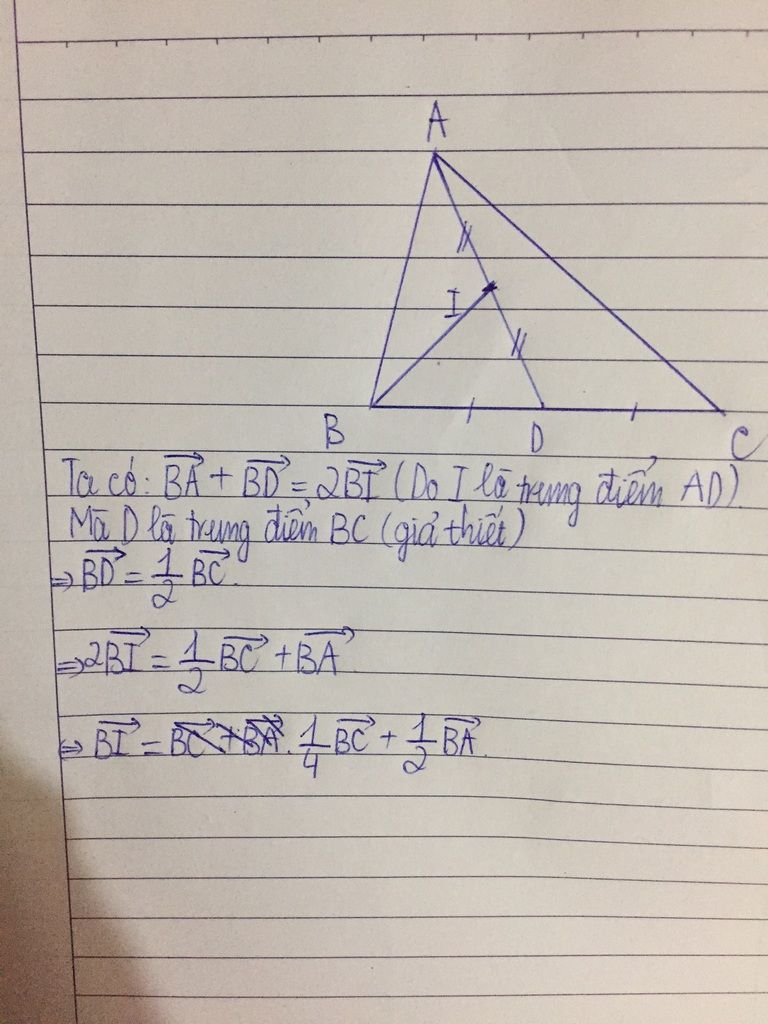 A
I
B D C
Ta có: $\overrightarrow{BA} + \overrightarrow{BD} = 2\overrightarrow{BI}$ (Do I là trung điểm AD).
Mà D là trung điểm BC (giả thiết)
⇒ $\overrightarrow{BD} = \frac{1}{2}\overrightarrow{BC}$.
⇒ $2\overrightarrow{BI} = \frac{1}{2}\overrightarrow{BC} + \overrightarrow{BA}$
⇒ $\overrightarrow{BI} = $ ~~$\overrightarrow{BC} + \overrightarrow{BA}$.~~ $\frac{1}{4}\overrightarrow{BC} + \frac{1}{2}\overrightarrow{BA}$.